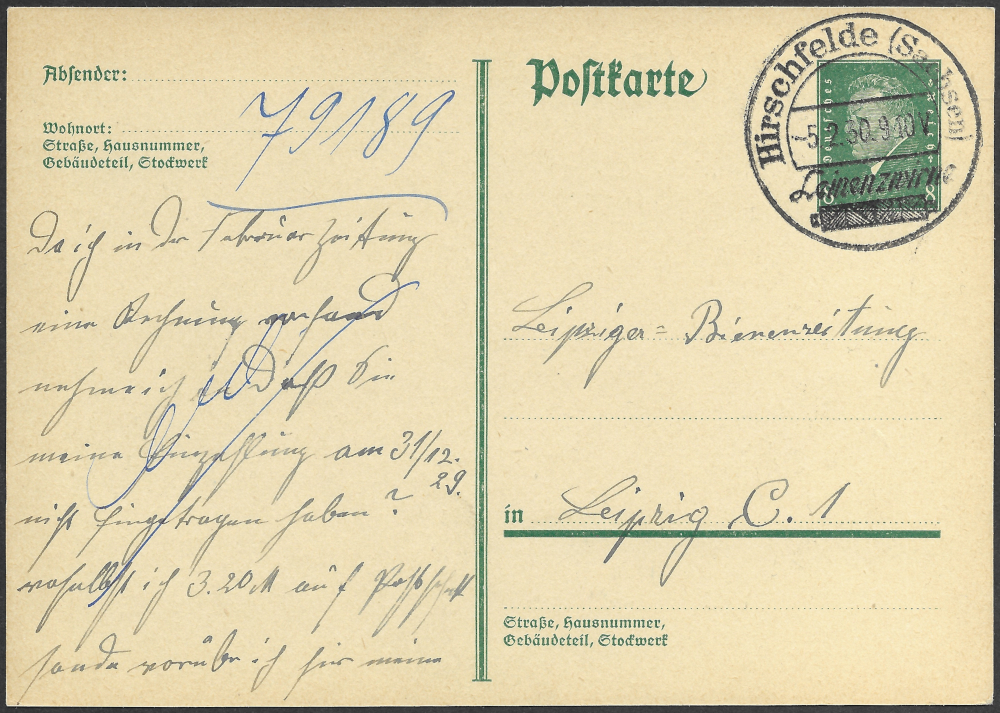 Absender:
79189
Wohnort:
Straße, Hausnummer,
Gebäudeteil, Stockwerk
Da ich in der Februar Zeitung
eine Rechnung vorfand
nehme ich an Daß Sie
meine Einzahlung am 31/12.
29.
nicht Eingetragen haben?
woselbst ich 3.20 M auf
sande worüber ich hier meine
Postkarte
Hirschfelde (Sachsen)
-5.2.30.9-10V
Leinenzwirne
Deutsches Reich
8 8
Leipziger=Bienenzeitung
in Leipzig C. 1
Straße, Hausnummer,
Gebäudeteil, Stockwerk